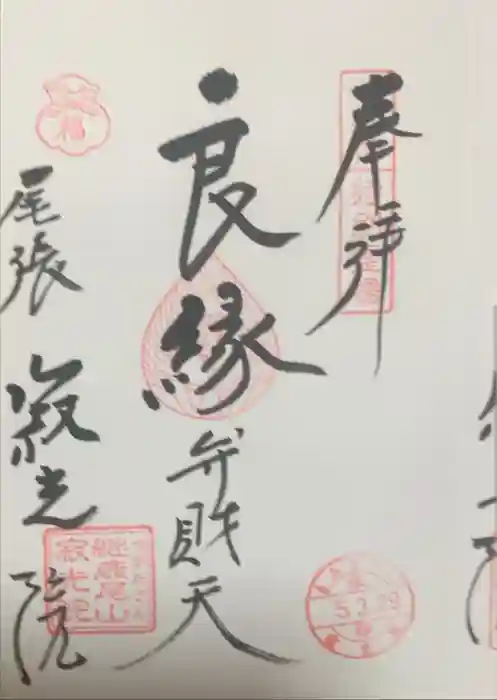 奉拝
良縁弁財天
尾張 寂光院
福
継鹿尾山
寂光院
5.3.29